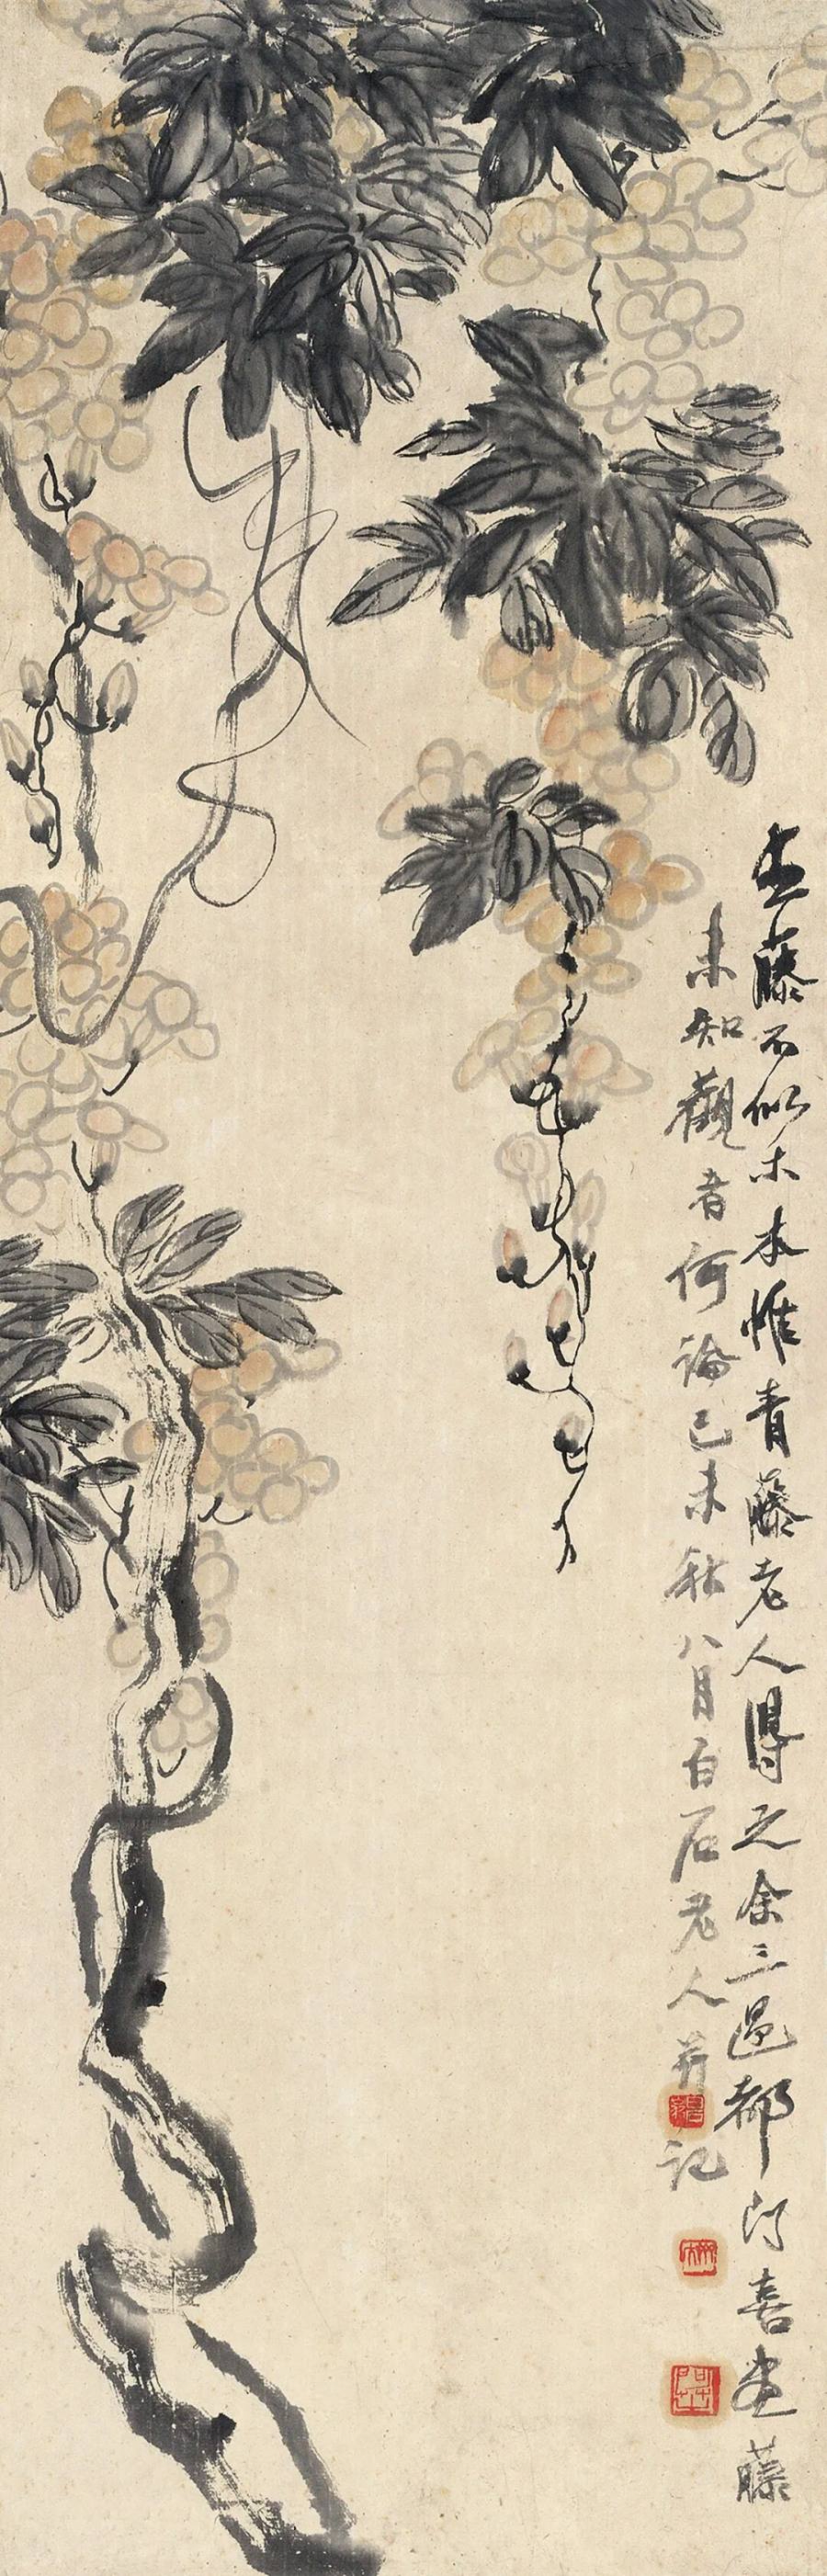 画藤不似木本惟青藤老人得之余三過都門喜画藤
未知觀者何論己未秋八月白石老人并記